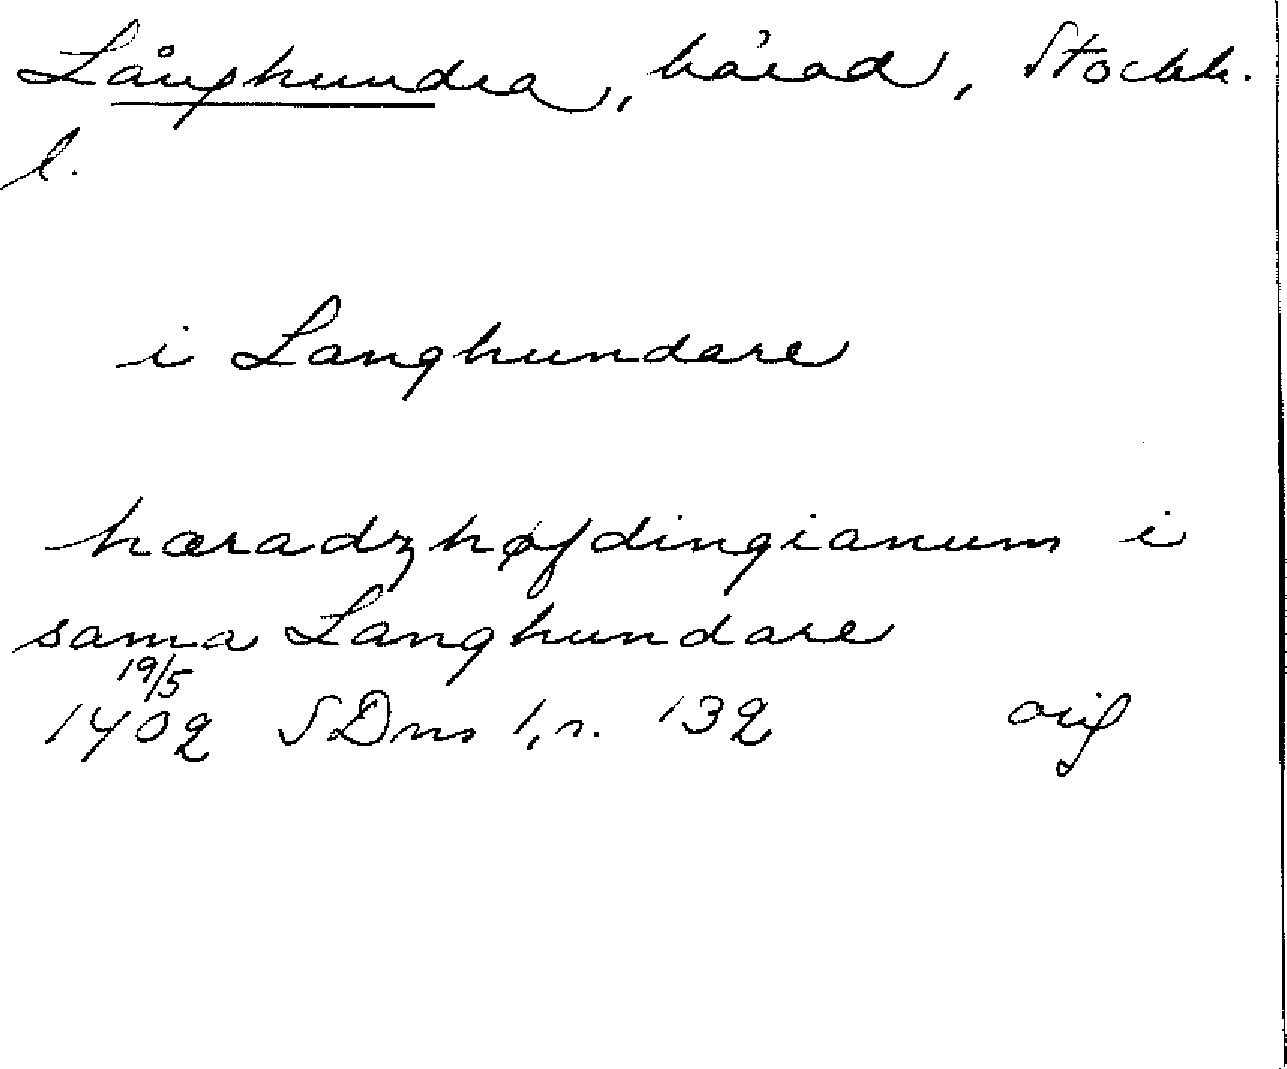 Långhundra, härad, Stockh.
l.
i Langhundare
hæradzhøfdingianum i
sama Langhundare
19/5
1402 SDns 1, n. 132 orig